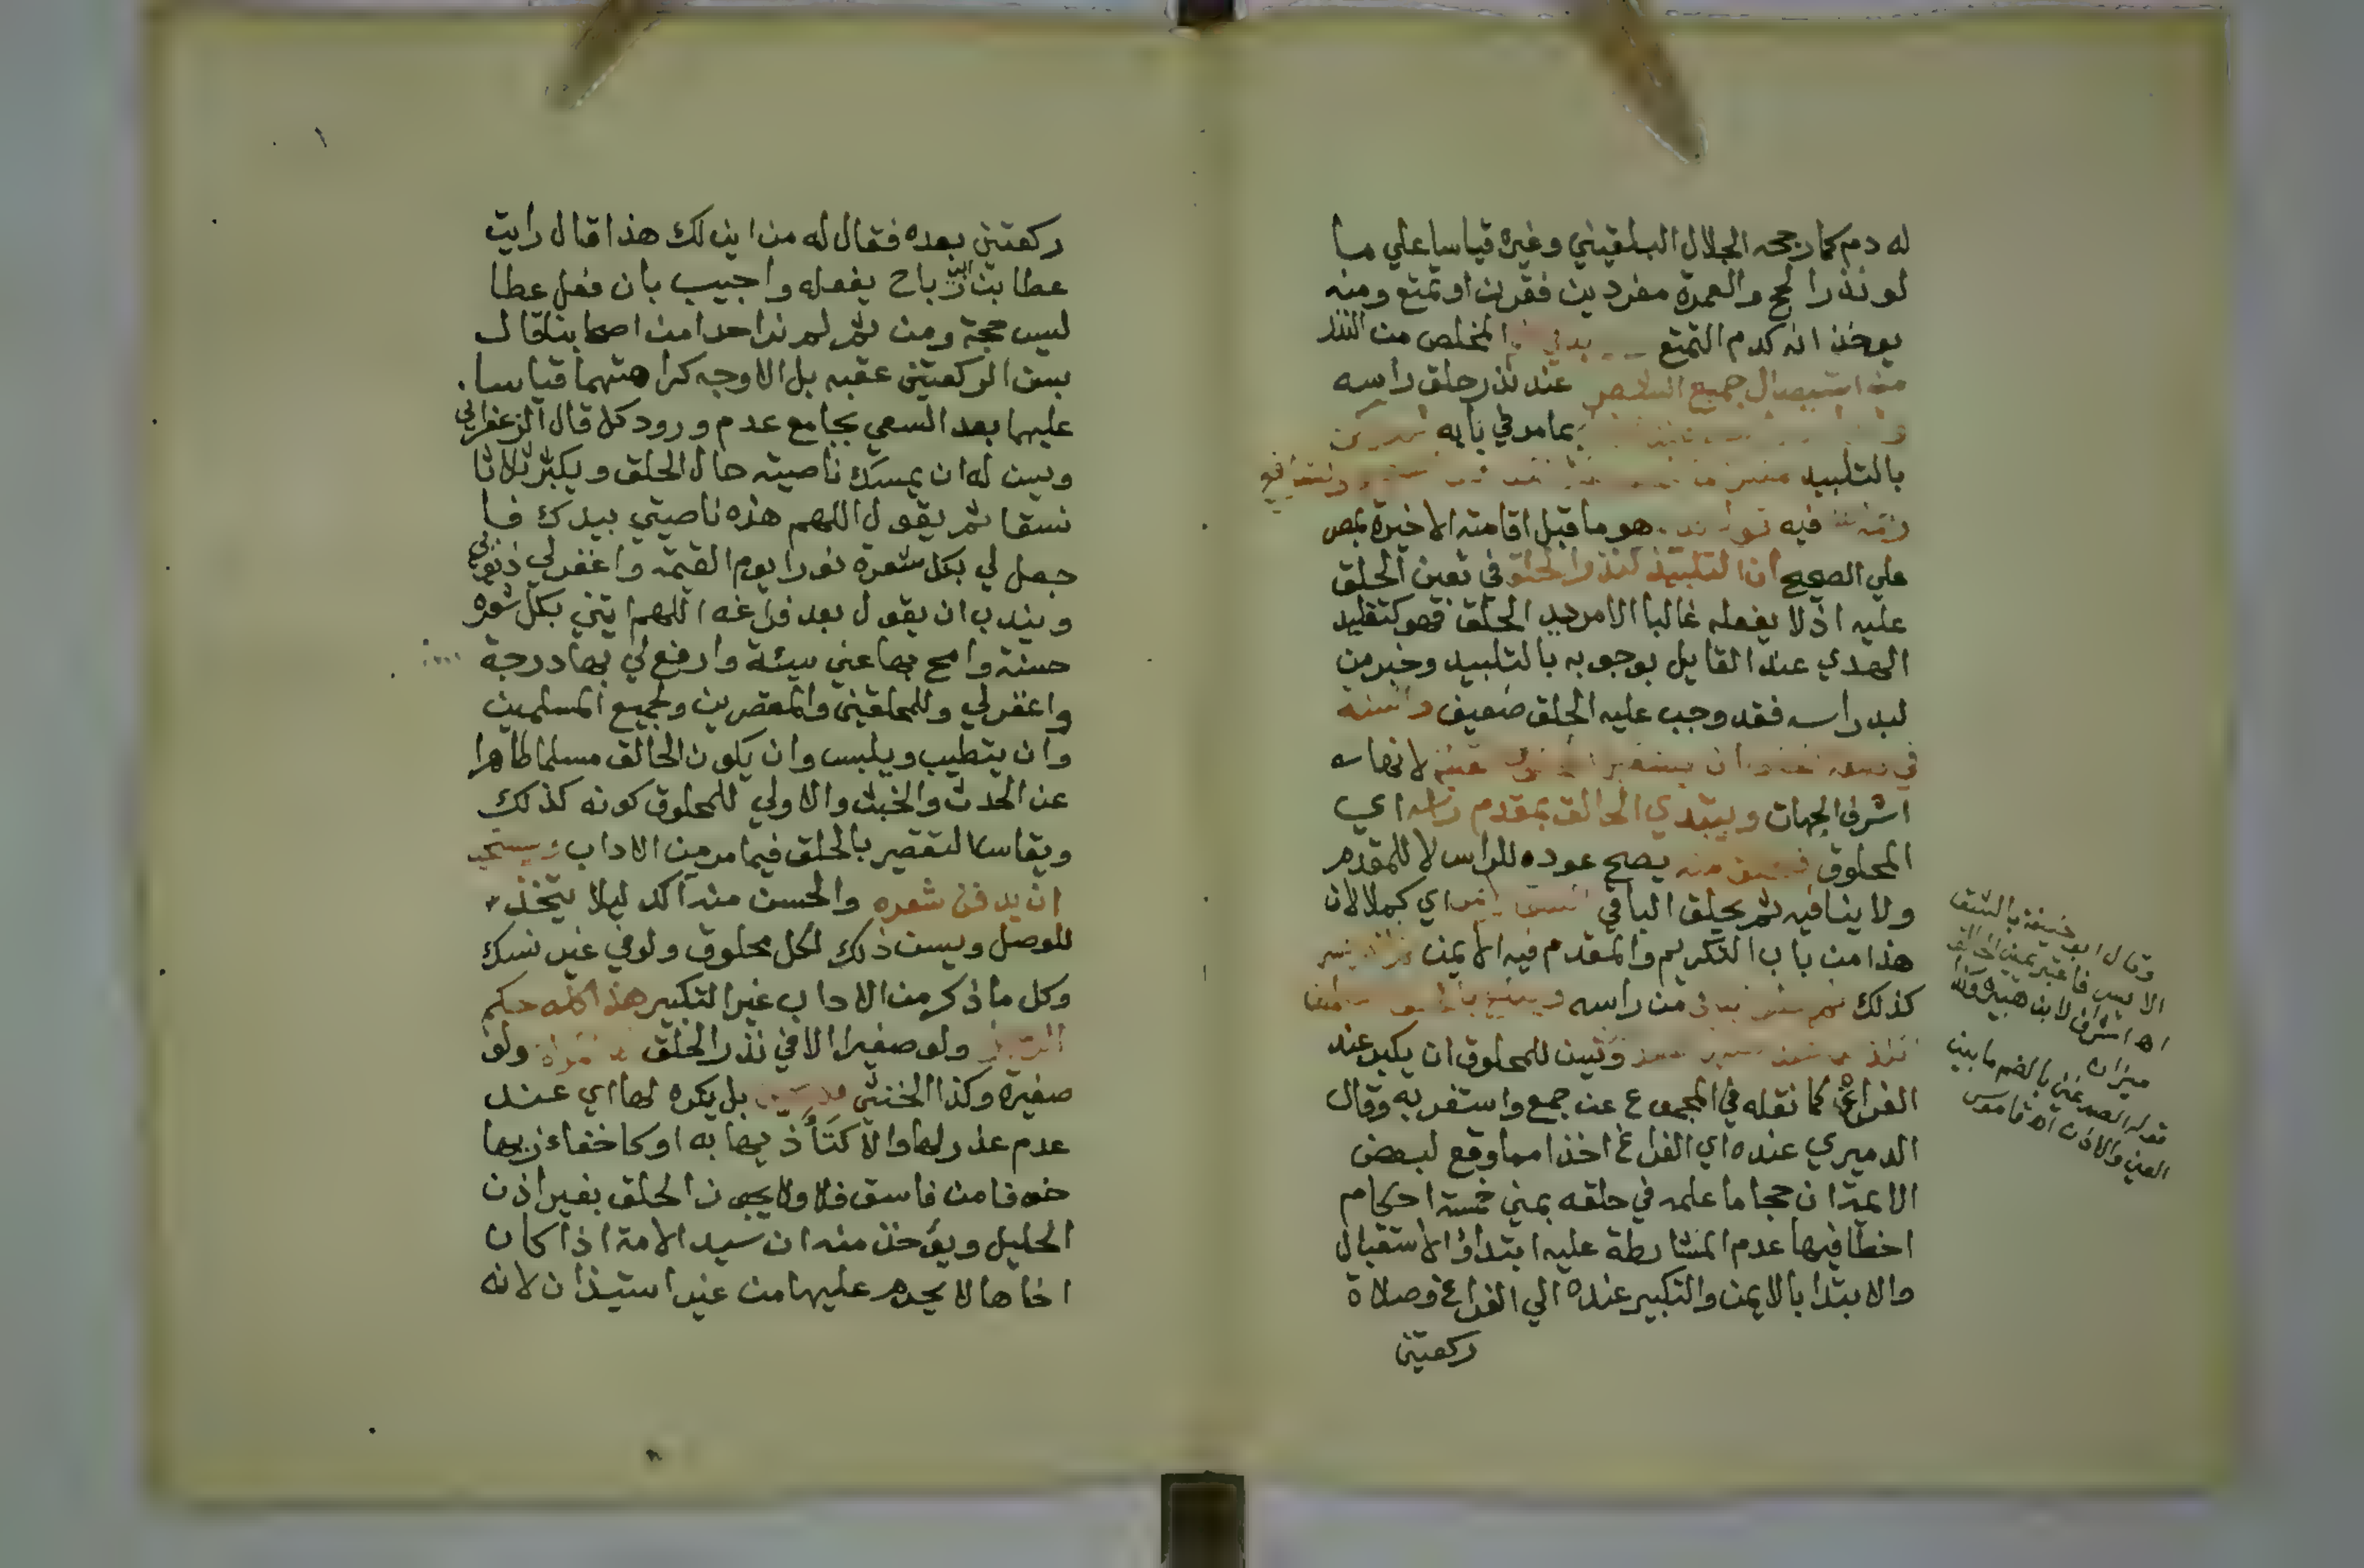 له دم كما رجحه الجلال البلقيني وغيره قياسا علي ما
لو نذر الحج والعمرة مفردين فقرن او تمتع ومنه
يوخذ انه كدم التمتع المخلص من النذر
من استيصال جميع عند نذر حلق راسه
بما مر في بابه
بالتلبيد
فيه هو ما قبل اقامته الاخيرة بمص
علي الصحيح ان التلبيد كنذر الحلق في تعين الحلق
عليه اذ لا يفعله غالبا الا مريد الحلق فهو كتقليد
الهدي عند القايل بوجوبه بالتلبيد وخبر من
لبد راسه فقد وجب عليه الحلق ضعيف والسنة
في ان يستقبل لانها
اشرف الجهات ويبتدي الحالق بمقدم راسه اي
المحلوق منه يصح عوده للراس لا للمقدم
ولا ينافيه ثم يحلق الباقي اي كملا لان
هذا من باب التكريم والمقدم فيه الايمن
كذلك ثم من راسه
وتسن للمحلوق ان يكبر عند
الفراغ كما نقله في المجموع عن جمع واستغربه وقال
الدميري عنده اي الفراغ اخذا مما وقع لبعض
الايمة ان حجاما علمه في حلقه بمني خمسة احكام
اخطا فيها عدم المشارطة عليه ابتداؤ الاستقبال
والابتدا بالايمن والتكبير عنده الي الفراغ وصلاة
ركعتين
وقال ابو حنيفة بالشق
الايسر فاعتبر يمين الحالق
اه اشراف لابن هبيرة وكذا
ميزان
قوله الصدغين بالضم ما بين
العين والاذن اه قاموس
ركعتين بعده فقال له من اين لك هذا قال رايت
عطا بن ابي رباح يفعله واجيب بان فعل عطا
ليس حجة ومن ثم لم نر احدا من اصحابنا قال
بسن الركعتين عقبه بل الاوجه كراهتهما قياسا
عليهما بعد السعي بجامع عدم ورود كل قال الزعفراني
ويسن له ان يمسك ناصيته حال الحلق ويكبر ثلاثا
نسقا ثم يقول اللهم هذه ناصيتي بيدك فا
جعل لي بكل شعرة نورا يوم القيمة واغفر لي ذنوبي
ويندب ان يقول بعد فراغه اللهم اتني بكل شعرة
حسنة وامح بها عني سيئة وارفع لي بها درجة
واغفر لي وللمحلقين والمقصرين ولجميع المسلمين
وان يتطيب ويلبس وان يكون الحالق مسلما طاهرا
عن الحدث والخبث والاولي للمحلوق كونه كذلك
ويقاس التقصير بالحلق فيما مر من الاداب ويستحب
ان يدفن شعره والحسن منه آكد ليلا يتخذ
للوصل ويسن ذلك لكل محلوق ولو في غير نسك
وكل ما ذكر من الاداب غير التكبير هذا كله حكم
الرجل ولو صغيرا الا في نذر الحلق ولو
صغيرة وكذا الخنثي بل يكره لها اي عند
عدم عذر لها والا كتأذيها به او كاخفاء زيها
خوفا من فاسق فلا ولا يجوز الحلق بغير اذن
الحليل ويؤخذ منه ان سيد الامة اذا كان
اخاها لا يحرم عليها من غير استيذان لانه